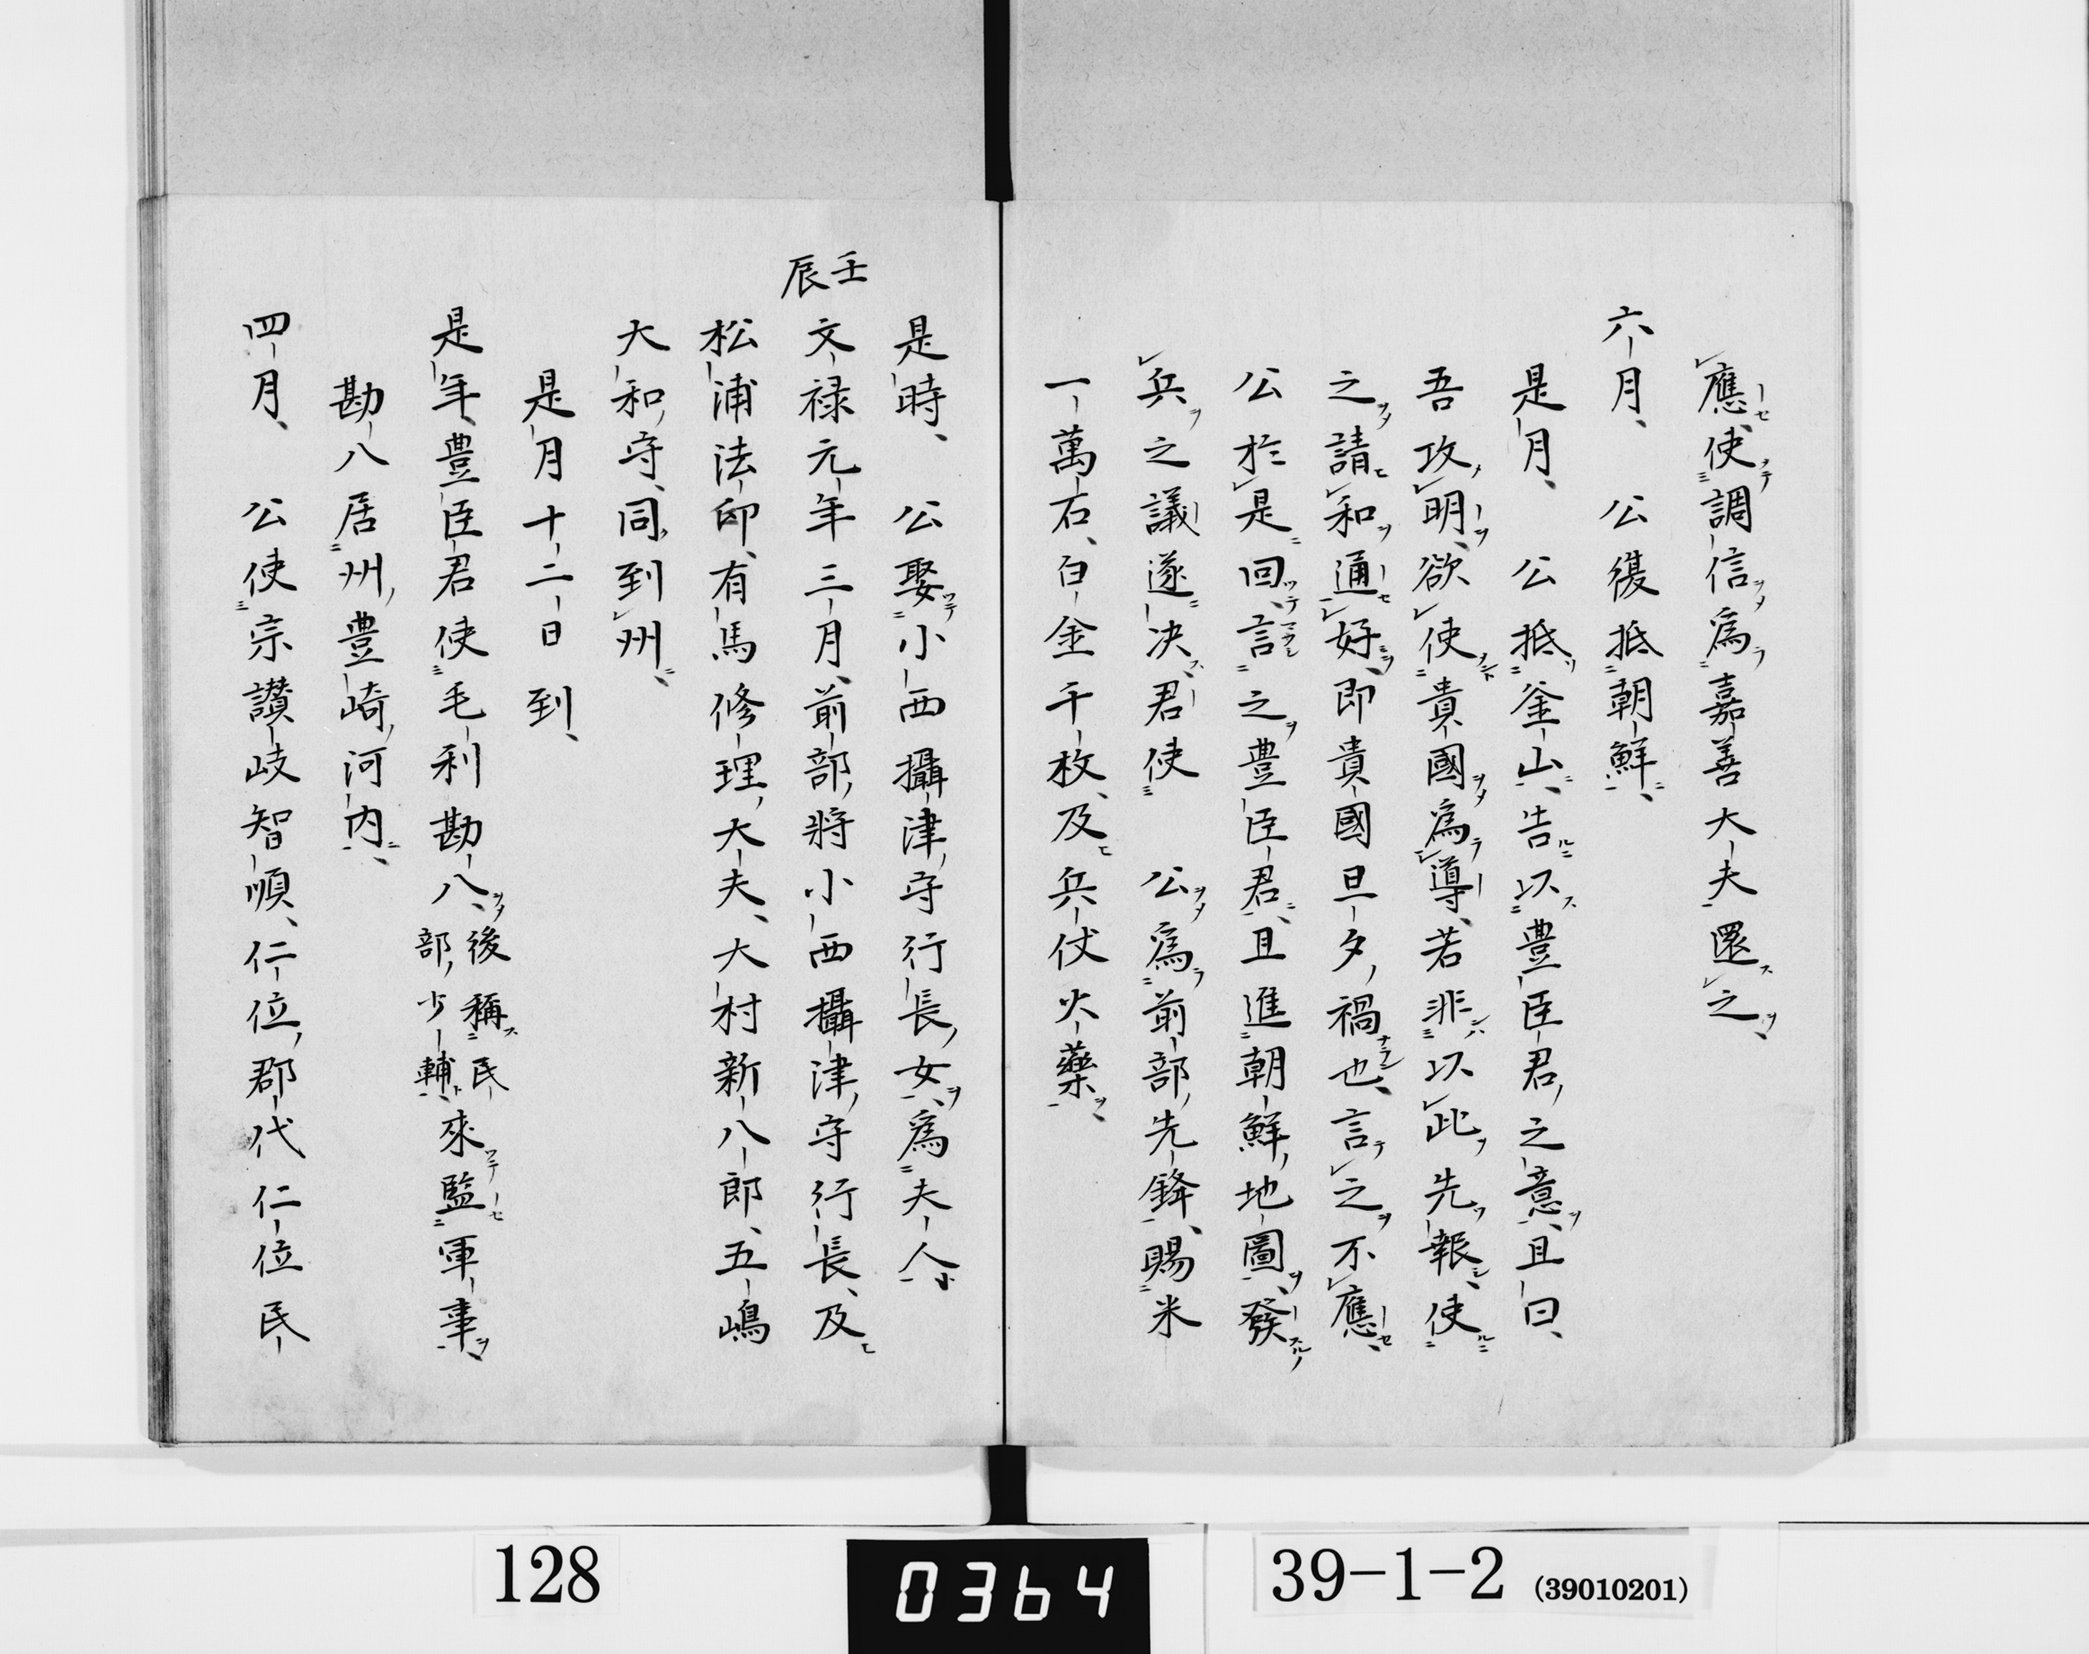 應使調信爲嘉善大夫還之
六月公復抵朝鮮
是月公抵釜山告以豊臣君之意且曰
吾攻明欲使貴國爲導若非以此先報使
之請和通好即貴國旦夕禍也言之不應
公於是回言之豊臣君且進朝鮮地圖發
兵之議遂决君使公爲前部先鋒賜米
一萬石白金千枚及兵仗火藥
是時公娶小西攝津守行長女爲夫人
壬辰
文禄元年三月前部將小西攝津守行長及
松浦法印有馬修理大夫大村新八郎五嶋
大和守同到州
是月十二日到
是年豊臣君使毛利勘八後稱民部少輔來監軍事
勘八居州豊崎河内
四月公使宗讃岐智順仁位郡代仁位民
128
0364
39-1-2 (39010201)